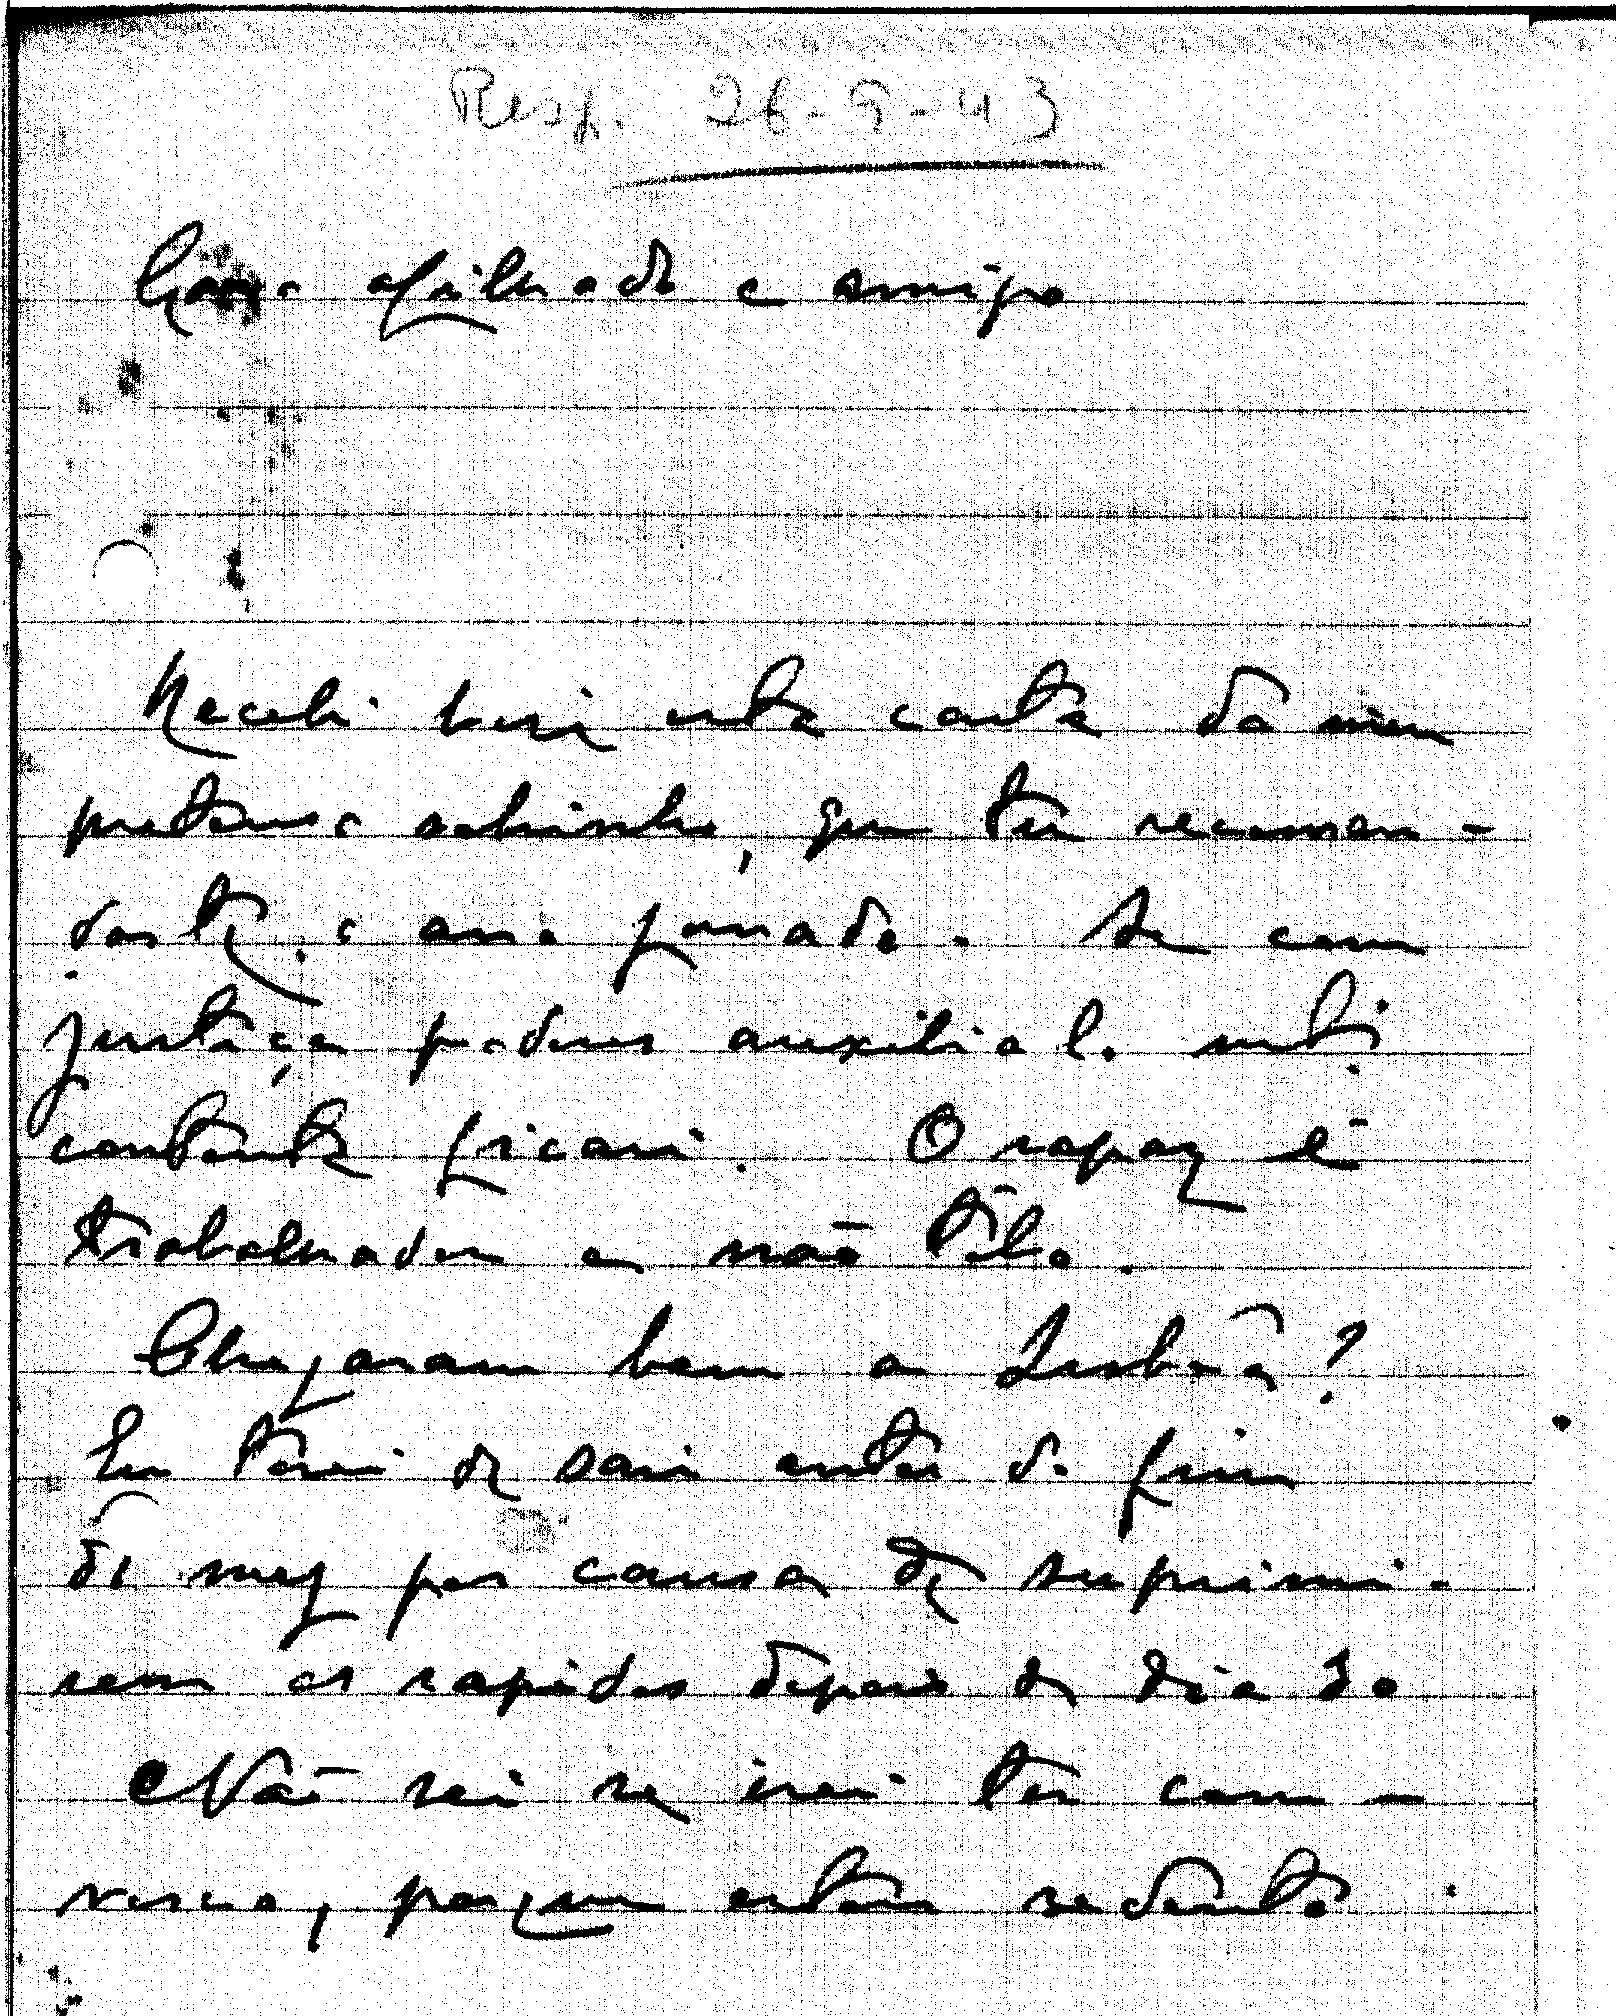 Resp. 26-9-43
Caro afilhado e amigo
Recebi hoje esta carta do meu
pretenso sobrinho, que tu recomen-
daste, e ano passado. Se com
justiça poderes auxilial-o muito
contente ficarei. O rapaz é
trabalhador e não tolo.
Chegaram bem a Lisboa?
Eu terei de sair antes do fim
do mez por causa de suprimi-
rem os rapidos depois do dia 30
Não sei se irei ter com-
vosco, porque estou sedento